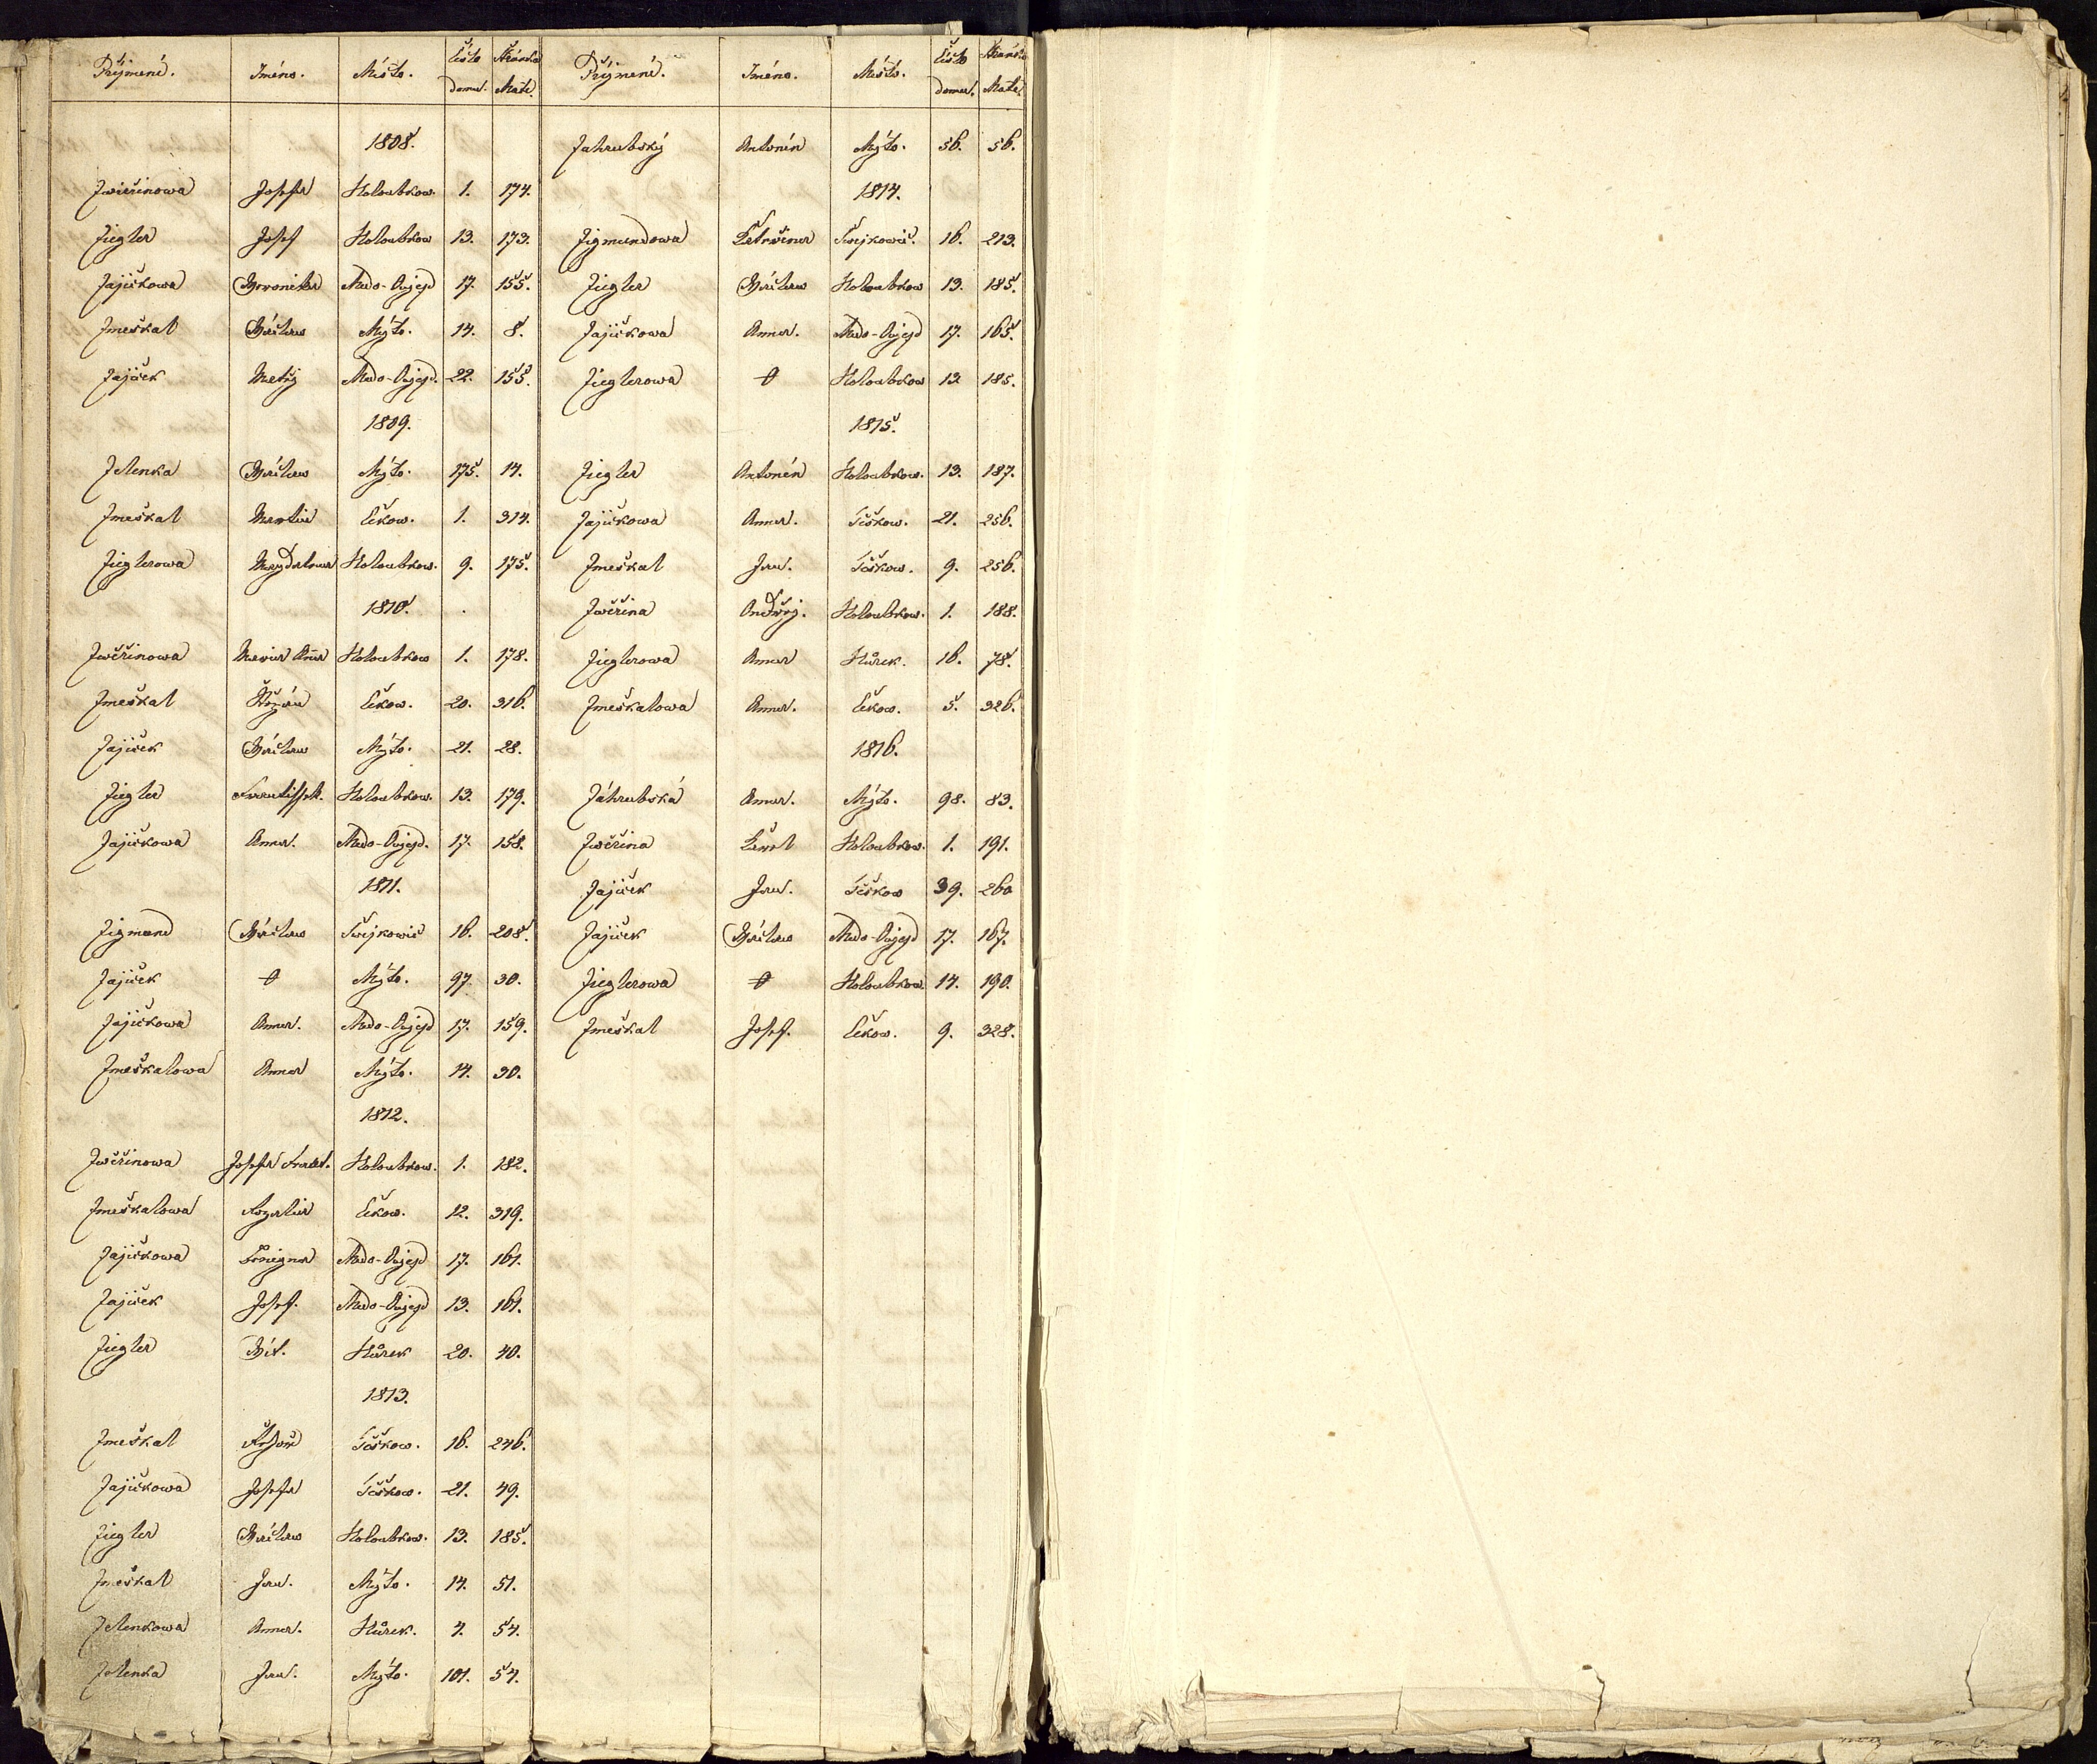 Přijmení. Jméno. Místo. Čislo domu. Stránka Mati.
1808.
Zwieřinowa Josefa Holoubkow. 1. 174.
Ziegler Josef Holoubkow 13. 173.
Zajíčkowa Weronika Medo-Aujezd 17. 155.
Zmeškal Wáclaw Mýto. 14. 8.
Zajíček Matěj Medo-Aujezd. 22. 155.
1809.
Zelenka Wáclaw Mýto. 175. 14.
Zmeškal Martin Cekow. 1. 314.
Zieglerowa Magdalena Holoubkow. 9. 175.
1810.
Zwěřinowa Maria Anna Holoubkow 1. 178.
Zmeškal Štěpán Cekow. 20. 316.
Zajíček Wáclaw Mýto. 21. 28.
Ziegler Frantissek. Holoubkow. 13. 179.
Zajíčkowa Anna. Medo-Aujezd. 17. 158.
1811.
Zigmund Wáclaw Swejkowic 16. 208.
Zajíček Mýto. 97. 30.
Zajíčkowa Anna. Medo-Aujezd 17. 159.
Zmeškalowa Anna Mýto. 14. 30.
1812.
Zwěřinowa Josefa Frant. Holoubkow. 1. 182.
Zmeškalowa Rozalia Cekow. 12. 319.
Zajíčkowa Medo-Aujezd 17. 161.
Zajíček Josef. Medo-Aujezd 13. 161.
Ziegler Wít. Hůrek 20. 40.
1813.
Zmeškal Řehoř Těškow. 16. 246.
Zajíčkowa Josefa Těškow. 21. 49.
Ziegler Wáclaw Holoubkow. 13. 185.
Zmeškal Jan. Mýto. 14. 51.
Zelenkowa Anna. Hůrek. 4. 54.
Zelenka Jan. Mýto. 101. 54.
Přijmení. Jméno. Místo. Čislo domu. Stránka Mati.
Zahrubský Antonín Mýto. 56. 56.
1814.
Zigmundowa Kateřina Swejkowic. 16. 213.
Ziegler Wáclaw Holoubkow 13. 185.
Zajíčkowa Anna. Medo-Aujezd 17. 165.
Zieglerowa Holoubkow 13 185.
1815.
Ziegler Antonín Holoubkow. 13. 187.
Zajíčkowa Anna. Těškow. 21. 256.
Zmeškal Jan. Těškow. 9. 256.
Zwěřina Ondřej. Holoubkow. 1. 188.
Zieglerowa Anna Hůrek. 16. 78.
Zmeškalowa Anna. Cekow. 5. 326.
1816.
Záhrubská Anna. Mýto. 98. 83.
Zwěřina Karel Holoubkow. 1. 191.
Zajíček Jan. Těškow 39. 260
Zajíček Wáclaw Medo-Aujezd 17. 167.
Zieglerowa Holoubkow. 14. 190.
Zmeškal Josef. Cekow. 9. 328.